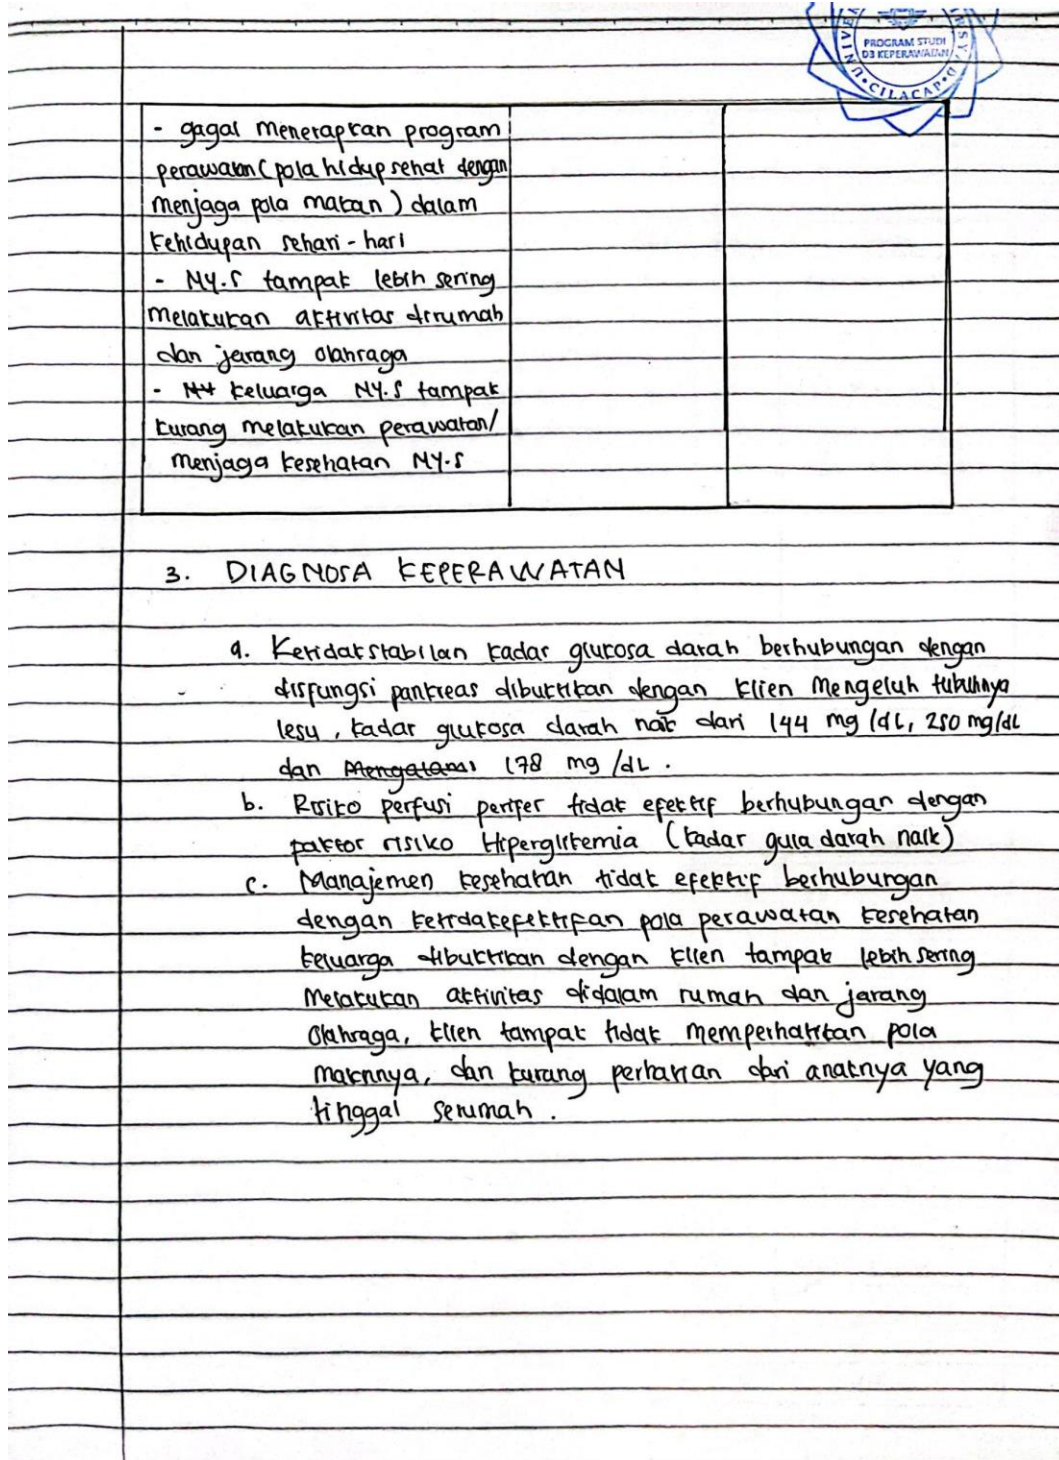 PROGRAM STUDI
D3 KEPERAWATAN
CILACAP
- gagal menerapkan program
perawatan (pola hidup sehat dengan
menjaga pola makan) dalam
kehidupan sehari-hari
- NY.S tampak lebih sering
melakukan aktivitas dirumah
dan jarang olahraga
- keluarga NY.S tampak
kurang melakukan perawatan/
menjaga kesehatan NY.S
3. DIAGNOSA KEPERAWATAN
a. Ketidakstabilan kadar glukosa darah berhubungan dengan
disfungsi pankreas dibuktikan dengan klien mengeluh tubuhnya
lesu, kadar glukosa darah naik dari 144 mg/dL, 250 mg/dL
dan Mengatami 178 mg/dL.
b. Risiko perfusi perifer tidak efektif berhubungan dengan
faktor risiko Hiperglikemia (kadar gula darah naik)
c. Manajemen kesehatan tidak efektif berhubungan
dengan ketidakefektifan pola perawatan kesehatan
keluarga dibuktikan dengan klien tampak lebih sering
melakukan aktivitas didalam rumah dan jarang
Olahraga, klien tampak tidak memperhatikan pola
maknnya, dan kurang perhatian dari anaknya yang
tinggal serumah.